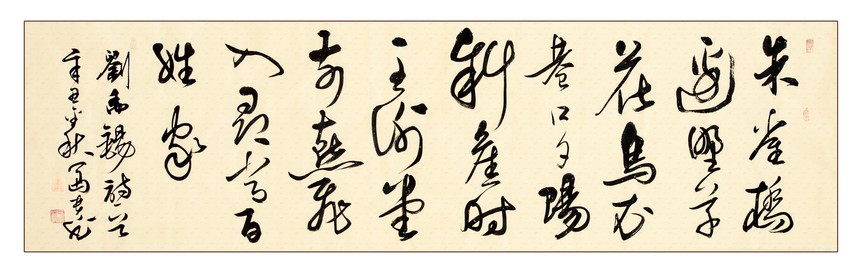 朱雀橋
邊野草
花烏衣
巷口夕陽
斜舊時
王謝堂
前燕飛
入尋常百
姓家
劉禹錫詩一首
辛丑年秋